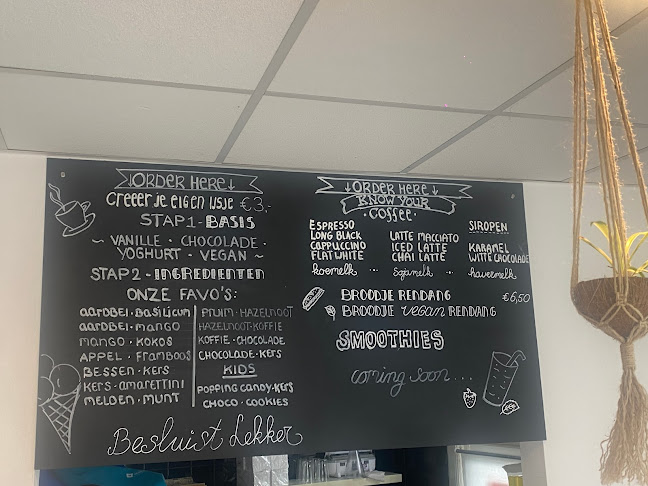 ↓ORDER HERE↓
Creëer je eigen ijsje €3,-
STAP 1 - BASIS
~ VANILLE · CHOCOLADE ·
YOGHURT · VEGAN ~
STAP 2 - INGREDIENTEN
ONZE FAVO'S:
AARDBEI · BASILICUM
AARDBEI · MANGO
MANGO · KOKOS
APPEL · FRAMBOOS
BESSEN · KERS
KERS · AMARETTINI
MELOEN · MUNT
PRUIM · HAZELNOOT
HAZELNOOT · KOFFIE
KOFFIE · CHOCOLADE
CHOCOLADE · KERS
KIDS
POPPING CANDY · KERS
CHOCO · COOKIES
Besluist Lekker
↓ORDER HERE↓
KNOW YOUR
Coffee.
ESPRESSO
LONG BLACK
CAPPUCCINO
FLAT WHITE
LATTE MACCIATO
ICED LATTE
CHAI LATTE
SIROPEN
KARAMEL
WITTE CHOCOLADE
koemelk ... sojamelk ... havermelk
BROODJE RENDANG €6,50
BROODJE vegan RENDANG
SMOOTHIES
coming soon ...